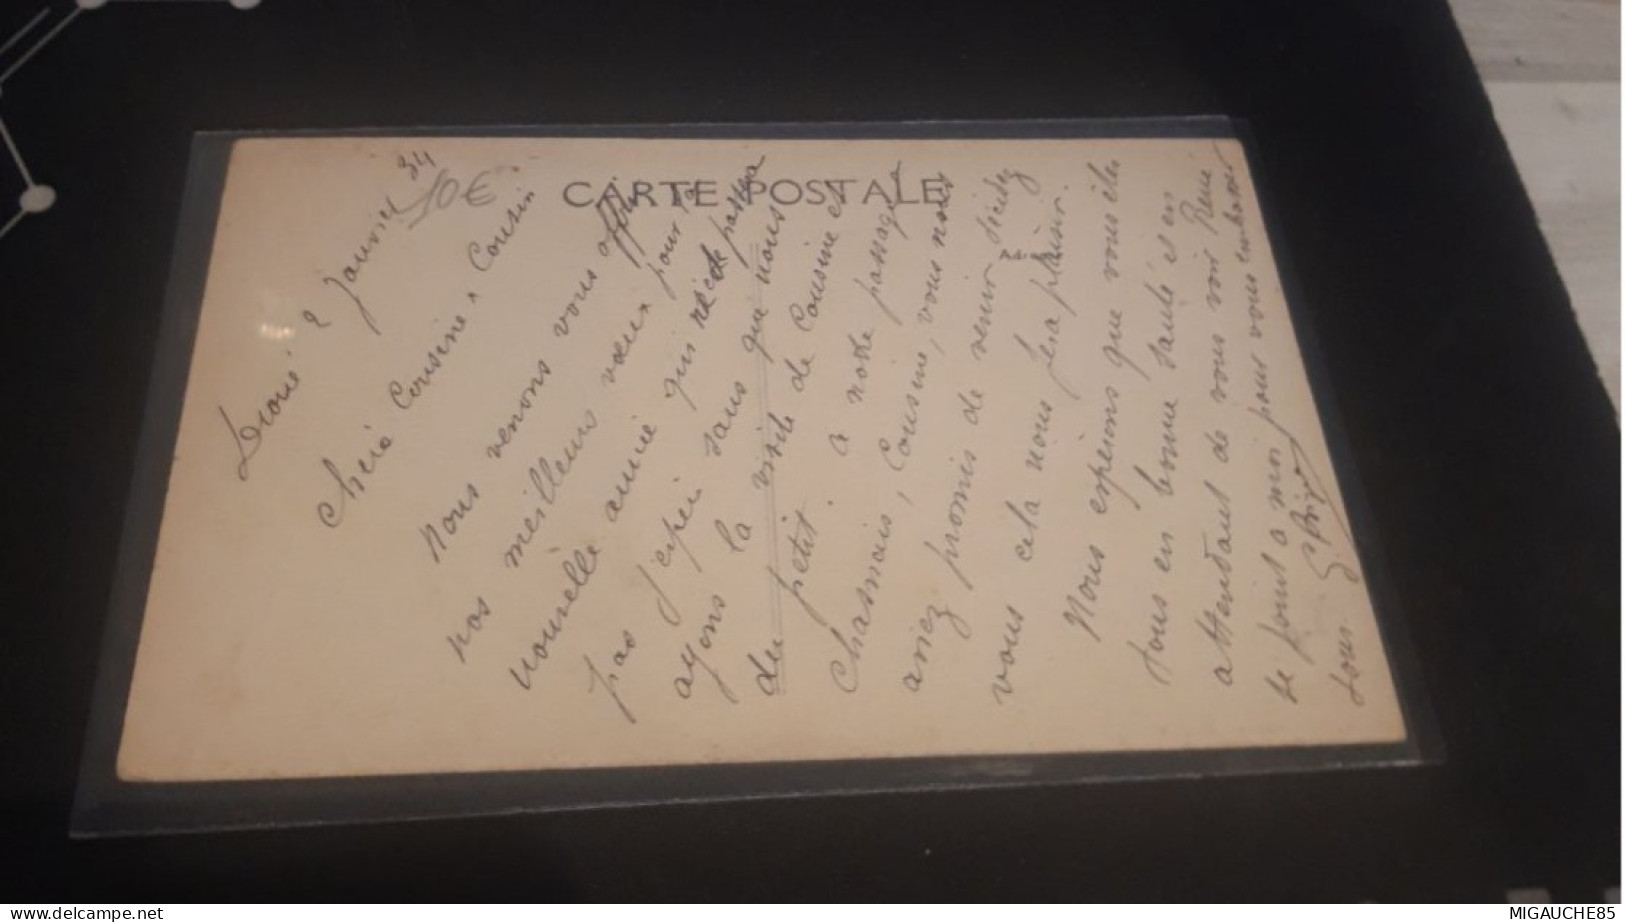 CARTE POSTALE
10€
2 Janvier 34
Chère Cousine & Cousin
Nous venons vous offrir
nos meilleurs vœux pour la
nouvelle année qui ne passera
pas j'espère sans que nous
ayons la visite de Cousine et
du petit. a notre passage a
Chasnais, Cousine, vous nous
aviez promis de venir décidez
vous cela nous fera plaisir.
Nous espérons que vous êtes
tous en bonne santé et en
attendant de vous voir René
se joint a moi pour vous embrasser
tous.
MIGAUCHE85